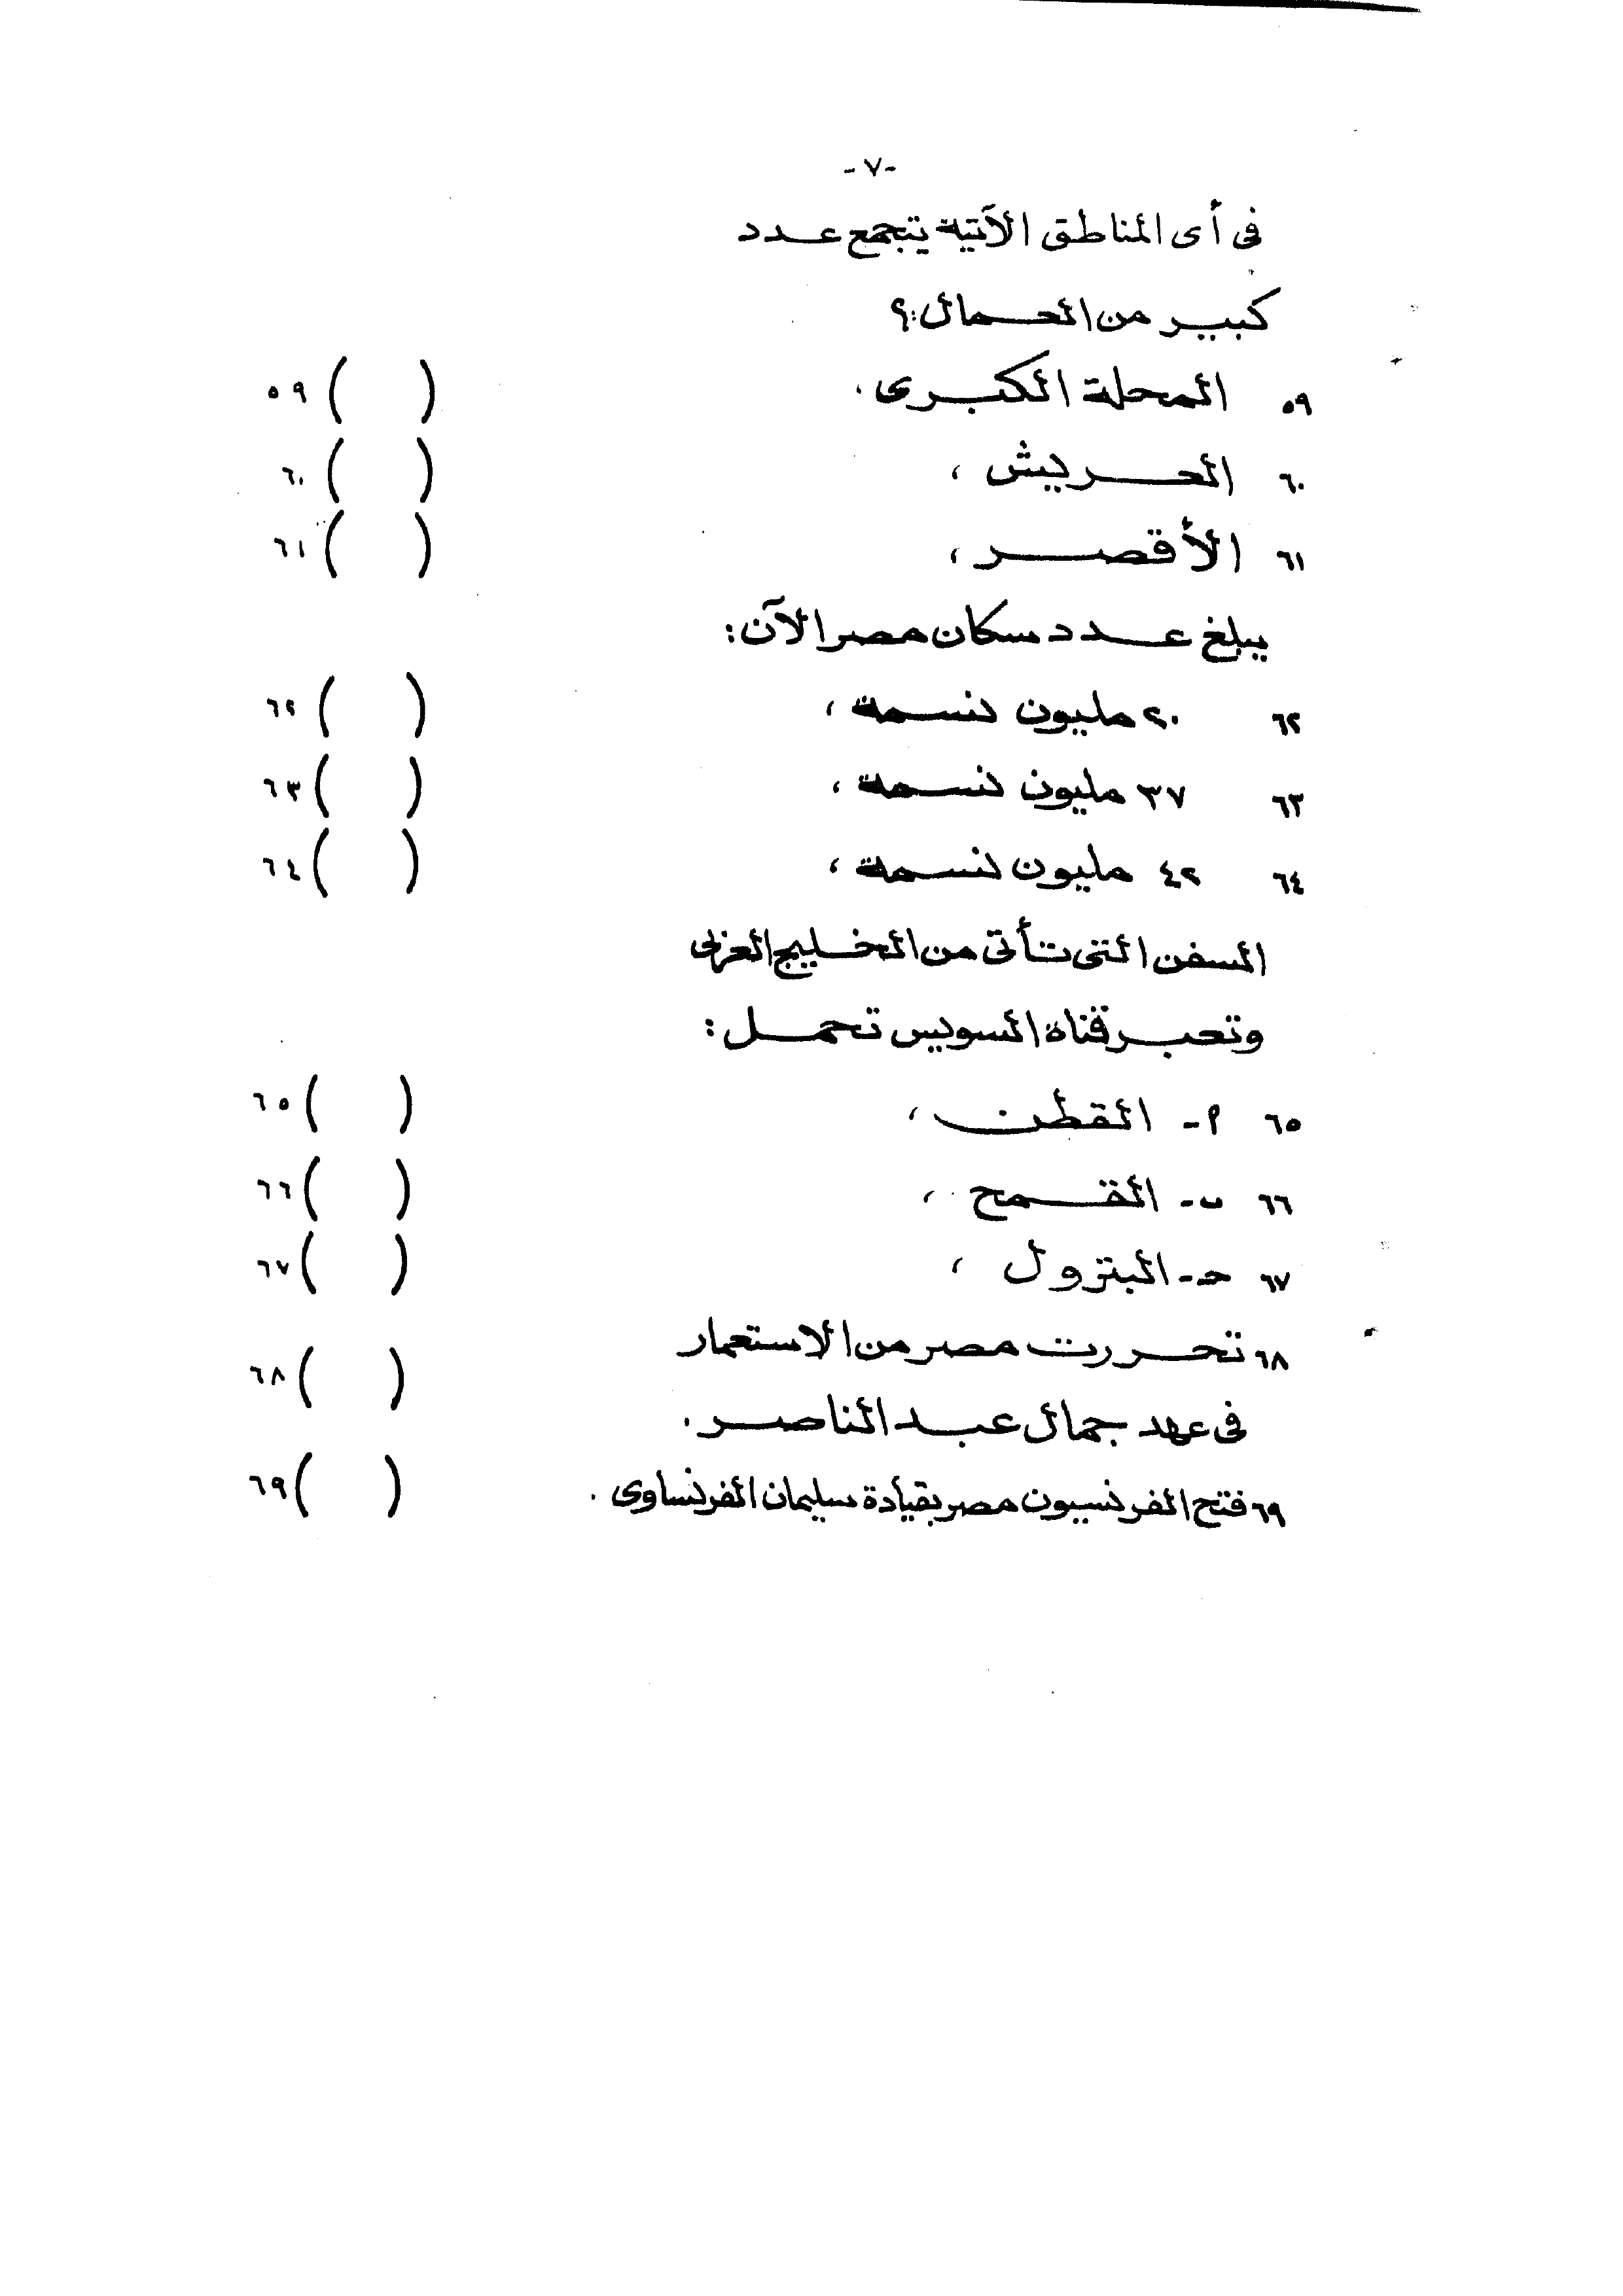 -٧-
فى أى المناطق الآتية يتجمع عدد
كبير من العمال:؟
٥٩ المحلة الكبرى. ( ) ٥٩
٦٠ العريش، ( ) ٦٠
٦١ الأقصر، ( ) ٦١
يبلغ عدد سكان مصر الآن:
٦٢ ٢٠ مليون نسمة، ( ) ٦٢
٦٣ ٣٧ مليون نسمة، ( ) ٦٣
٦٤ ٤٢ مليون نسمة، ( ) ٦٤
السفن التى تأتى من الخليج العربى
وتعبر قناة السويس تحمل:
٦٥ أ- القطن، ( ) ٦٥
٦٦ ب- القمح، ( ) ٦٦
٦٧ حـ- البترول، ( ) ٦٧
٦٨ تحررت مصر من الاستعمار ( ) ٦٨
فى عهد جمال عبد الناصر.
٦٩ فتح الفرنسيون مصر بقيادة سليمان الفرنساوى. ( ) ٦٩